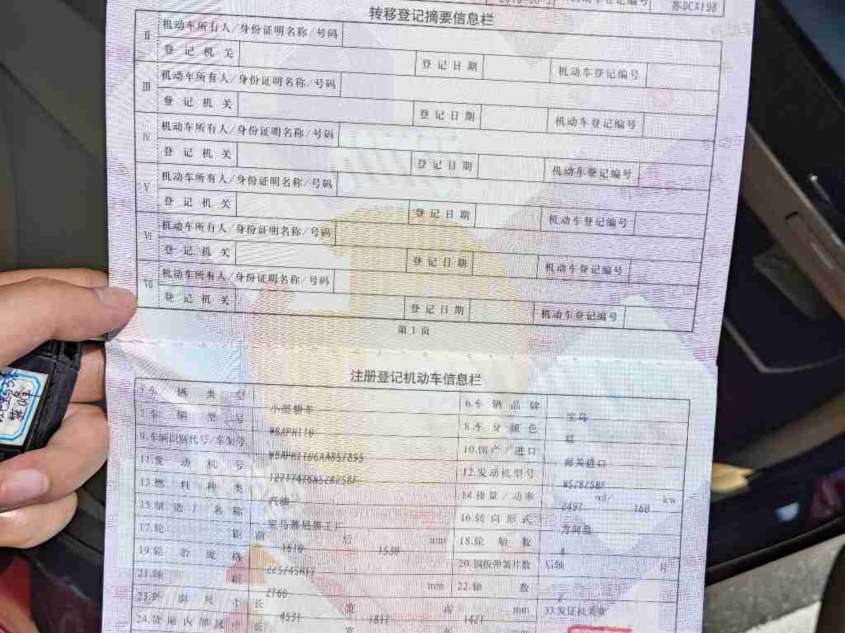 机动车登记编号 苏DCX198
转移登记摘要信息栏
Ⅱ 机动车所有人/身份证明名称/号码
登记机关 登记日期 机动车登记编号
Ⅲ 机动车所有人/身份证明名称/号码
登记机关 登记日期 机动车登记编号
Ⅳ 机动车所有人/身份证明名称/号码
登记机关 登记日期 机动车登记编号
Ⅴ 机动车所有人/身份证明名称/号码
登记机关 登记日期 机动车登记编号
Ⅵ 机动车所有人/身份证明名称/号码
登记机关 登记日期 机动车登记编号
Ⅶ 机动车所有人/身份证明名称/号码
登记机关 登记日期 机动车登记编号
第1页
注册登记机动车信息栏
1.车辆类型 小型轿车 6.车辆品牌 宝马
7.车辆型号 WBAPH110 8.车身颜色 红
9.车辆识别代号/车架号 10.国产/进口 海关进口
11.发动机号 12.发动机型号 N52B25BF
13.燃料种类 汽油 14.排量/功率 2497 ml/ 160 kw
15.制造厂名称 16.转向形式 方向盘
17.轮距 前 后 1530 mm 18.轮胎数 4
19.轮胎规格 225/45R17 20.钢板弹簧片数 后轴 片
21.轴距 2760 mm 22.轴数 2
23.外廓尺寸 长 4531 宽 1817 高 1421 mm 33.发证机关章
24.货厢内部尺寸 长 宽 高